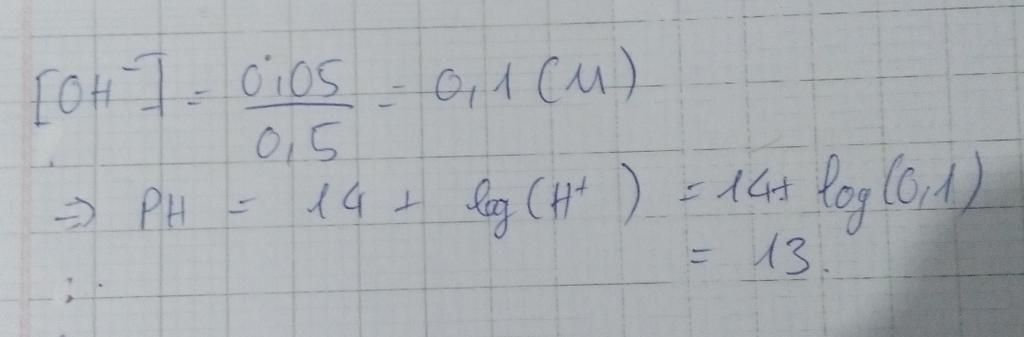 [OH⁻] = 0,05/0,5 = 0,1 (M)
⇒ PH = 14 + log(H⁺) = 14+ log(0,1)
= 13.